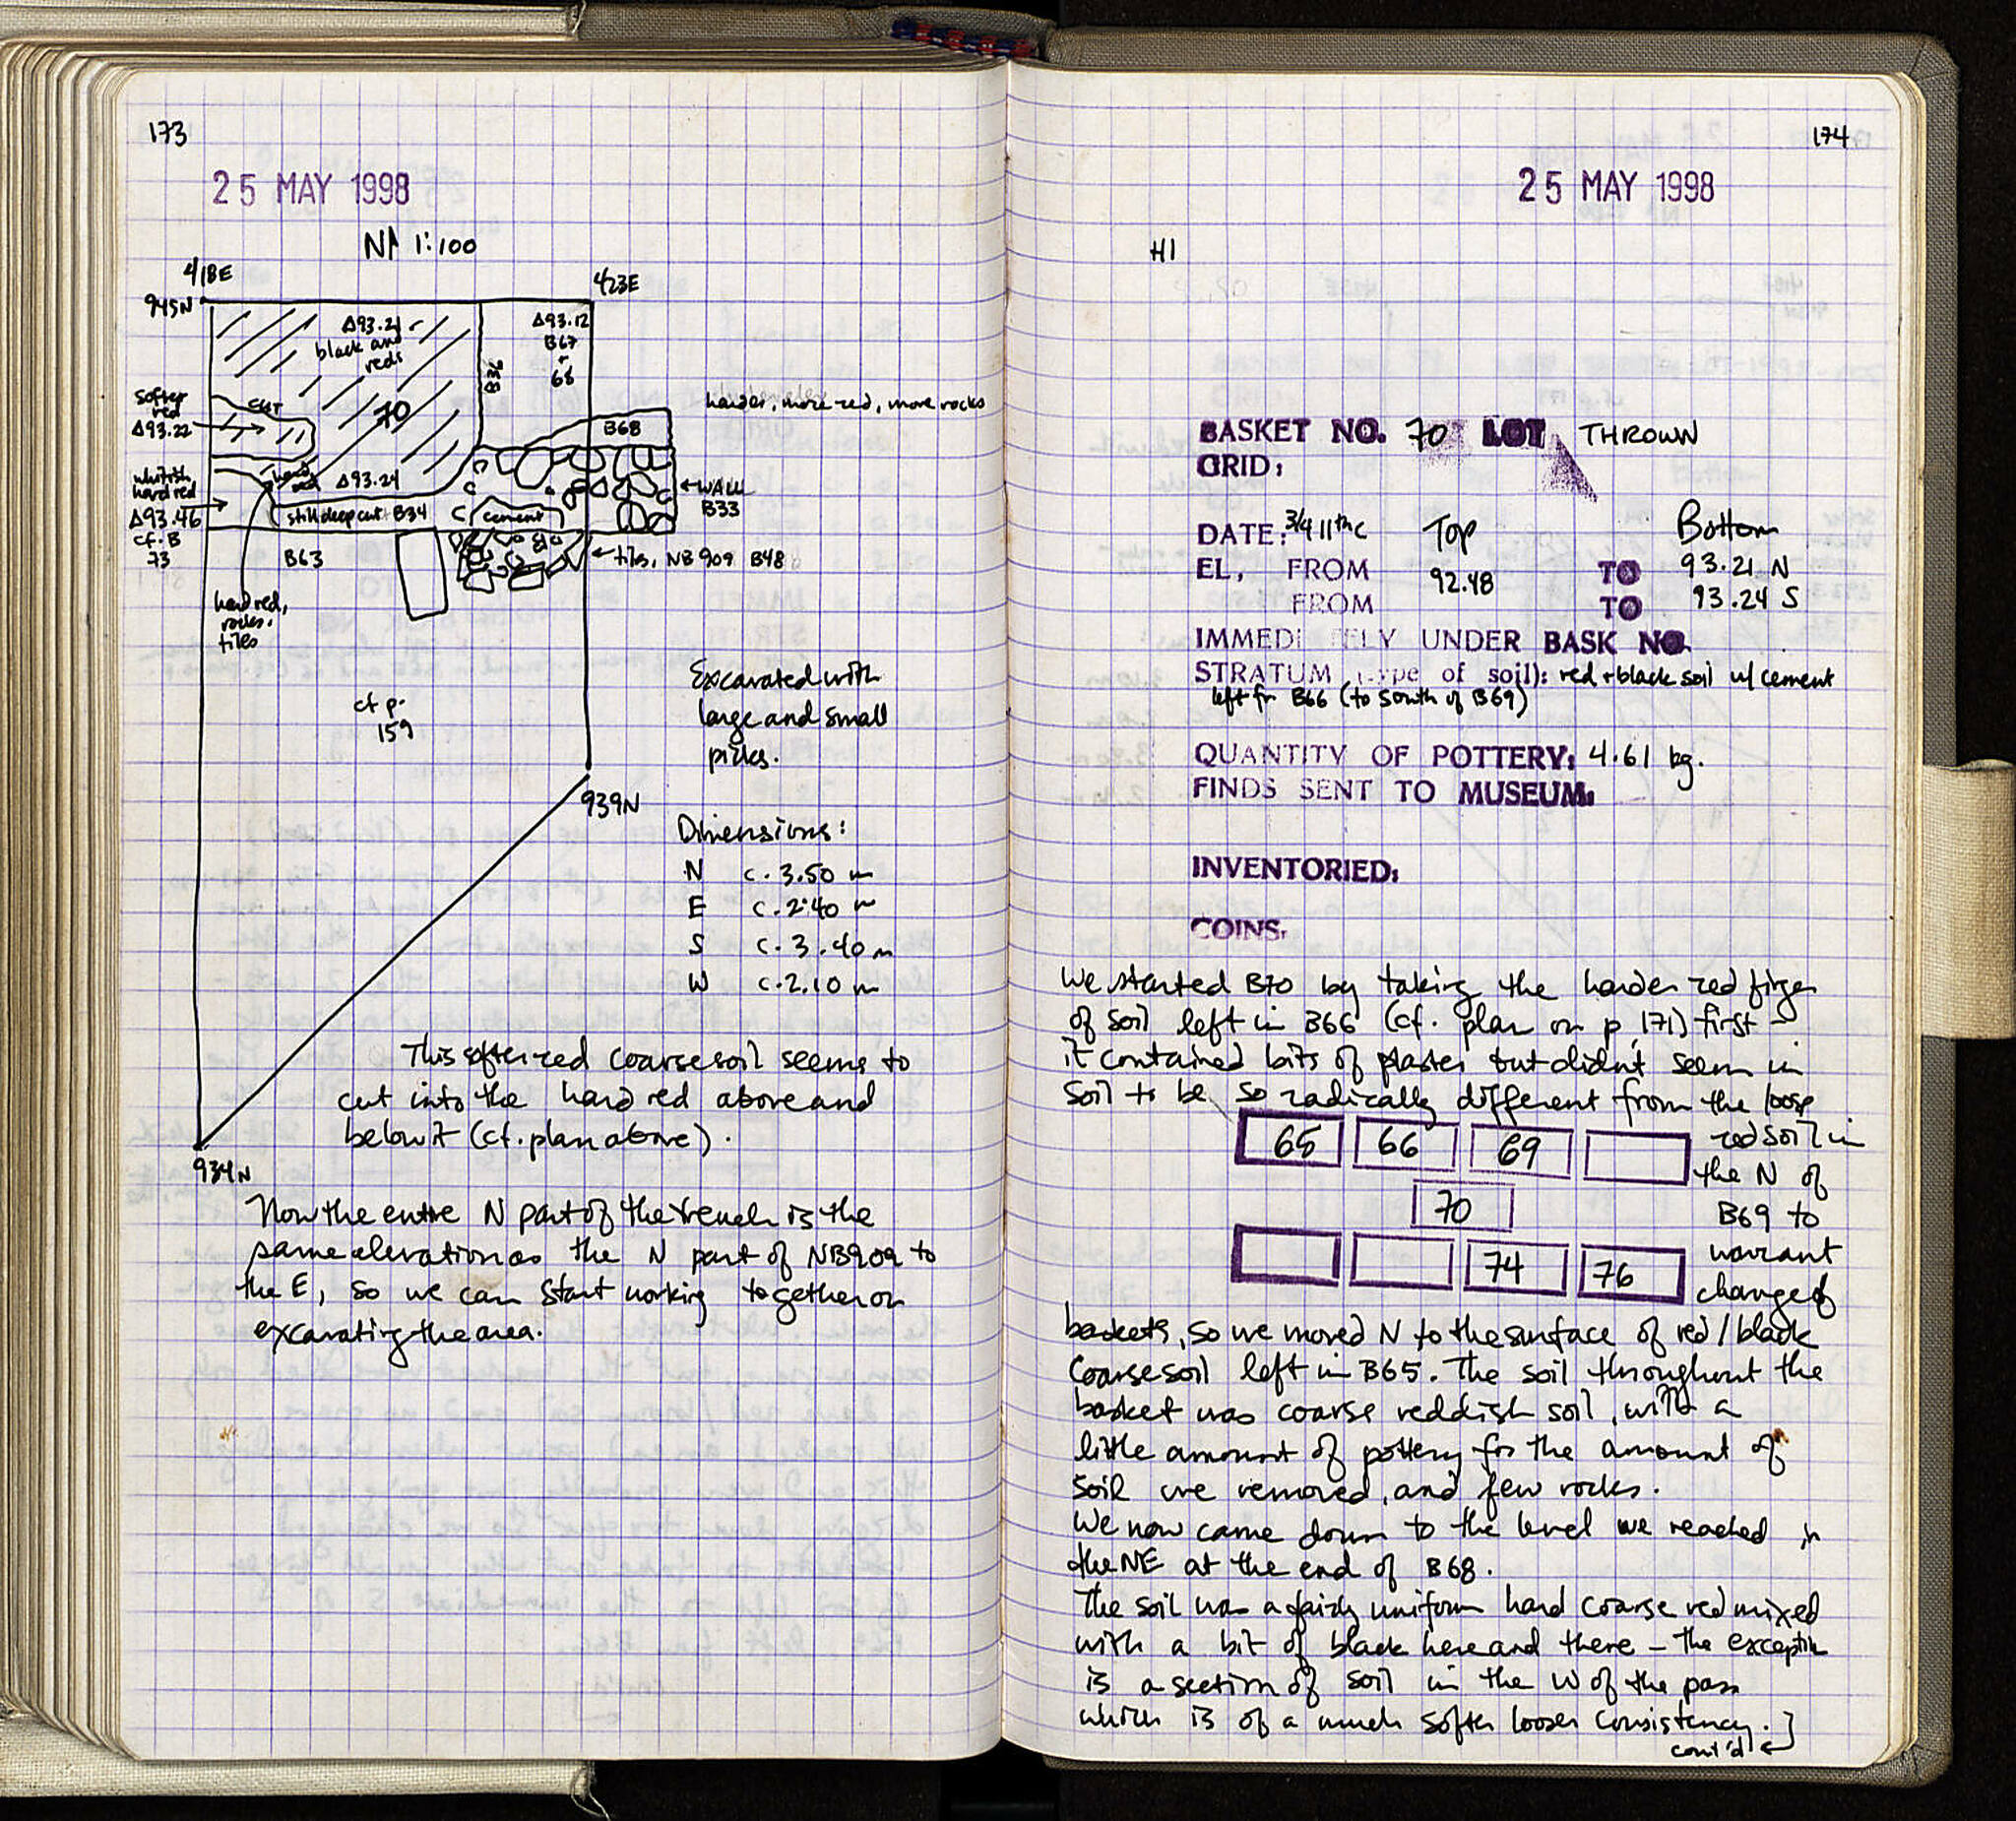 173
25 MAY 1998
N 1:100
418E
423E
945N
Δ93.21
black and
reds
Δ93.12
B67
+
68
B36
softer
red
Δ93.22
CUT
70
harder, more red, more rocks
B68
whitish
hard red
Δ93.46
cf. B
73
hard
red
Δ93.24
still deep cut B34
cement
WALL
B33
B63
tiles, NB 909 B48
hard red,
rocks,
tiles
cf p.
159
Excavated with
large and small
picks.
939N
Dimensions:
N c. 3.50 m
E c. 2.40 m
S c. 3.40 m
W c. 2.10 m
This softer red coarse soil seems to
cut into the hard red above and
below it (cf. plan above).
934N
Now the entire N part of the trench is the
same elevation as the N part of NB909 to
the E, so we can start working together on
excavating the area.
174
25 MAY 1998
H1
BASKET NO. 70 LOT THROWN
GRID:
DATE: 3/4 11th c Top Bottom
EL, FROM 92.48 TO 93.21 N
FROM TO 93.24 S
IMMEDI TELY UNDER BASK NO.
STRATUM (type of soil): red + black soil w/ cement
left fr B66 (to South of B69)
QUANTITY OF POTTERY: 4.61 kg.
FINDS SENT TO MUSEUM:
INVENTORIED:
COINS:
We started B70 by taking the harder red finger
of soil left in B66 (cf. plan on p 171) first -
it contained bits of plaster but didn't seem in
soil to be so radically different from the loose
65 66 69
red soil in
the N of
70
B69 to
warrant
74 76
change of
baskets, so we moved N to the surface of red/black
coarse soil left in B65. The soil throughout the
basket was coarse reddish soil, with a
little amount of pottery for the amount of
soil we removed, and few rocks.
We now came down to the level we reached in
the NE at the end of B68.
The soil was a fairly uniform hard coarse red mixed
with a bit of black here and there - the exception
is a section of soil in the W of the pass
which is of a much softer looser consistency.
cont'd